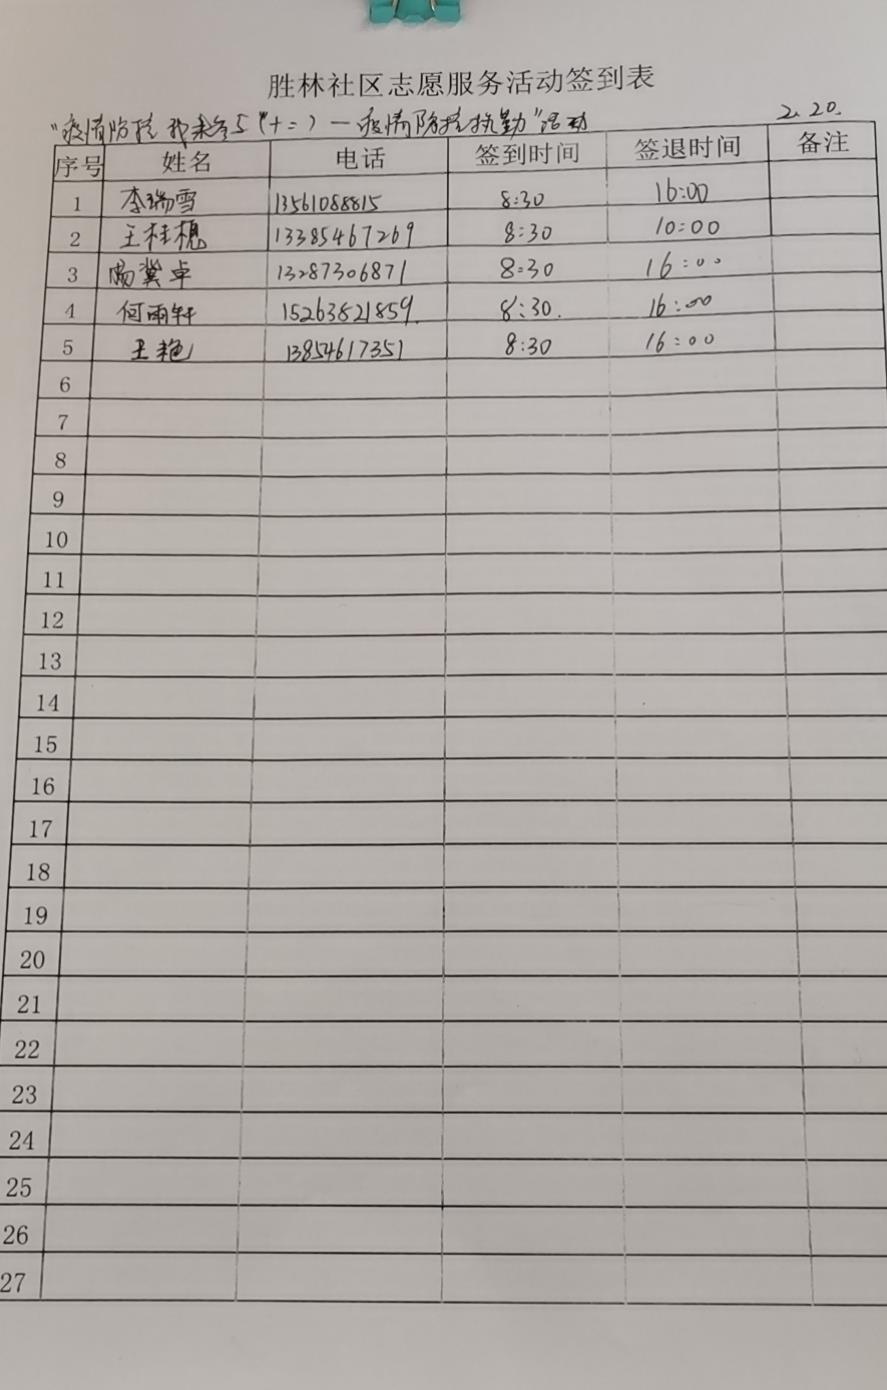 胜林社区志愿服务活动签到表
"疫情防控 我来参与(十二)—疫情防控执勤"活动 2.20.
序号 姓名 电话 签到时间 签退时间 备注
1 李瑞雪 13561088815 8:30 16:00
2 王桂槐 13385467269 8:30 10:00
3 冀卓 13287306871 8:30 16:00
4 何雨轩 15263821859 8:30. 16:00
5 王艳 13854617351 8:30 16:00
6
7
8
9
10
11
12
13
14
15
16
17
18
19
20
21
22
23
24
25
26
27